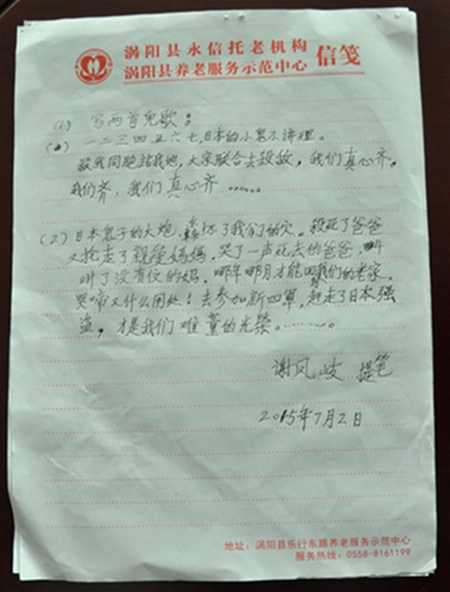 涡阳县永信托老机构
涡阳县养老服务示范中心 信笺
(1) 写两首儿歌:
一二三四五六七,日本的小鬼不讲理。
杀我同胞站我地,大家联合去杀敌,我们真心齐,
我们齐,我们真心齐……
(2)日本鬼子的大炮,轰坏了我们的穴。杀死了爸爸
又抢走了亲爱妈妈,哭了一声死去的爸爸,叫
叫了没有位的妈。哪年哪月才能回我们的老家。
哭啼又什么用处!去参加新四军,赶走了日本强
盗,才是我们难童的光荣………。
谢风岐 提笔
2015年7月2日
地址:涡阳县乐行东路养老服务示范中心
服务热线:0558-8161199